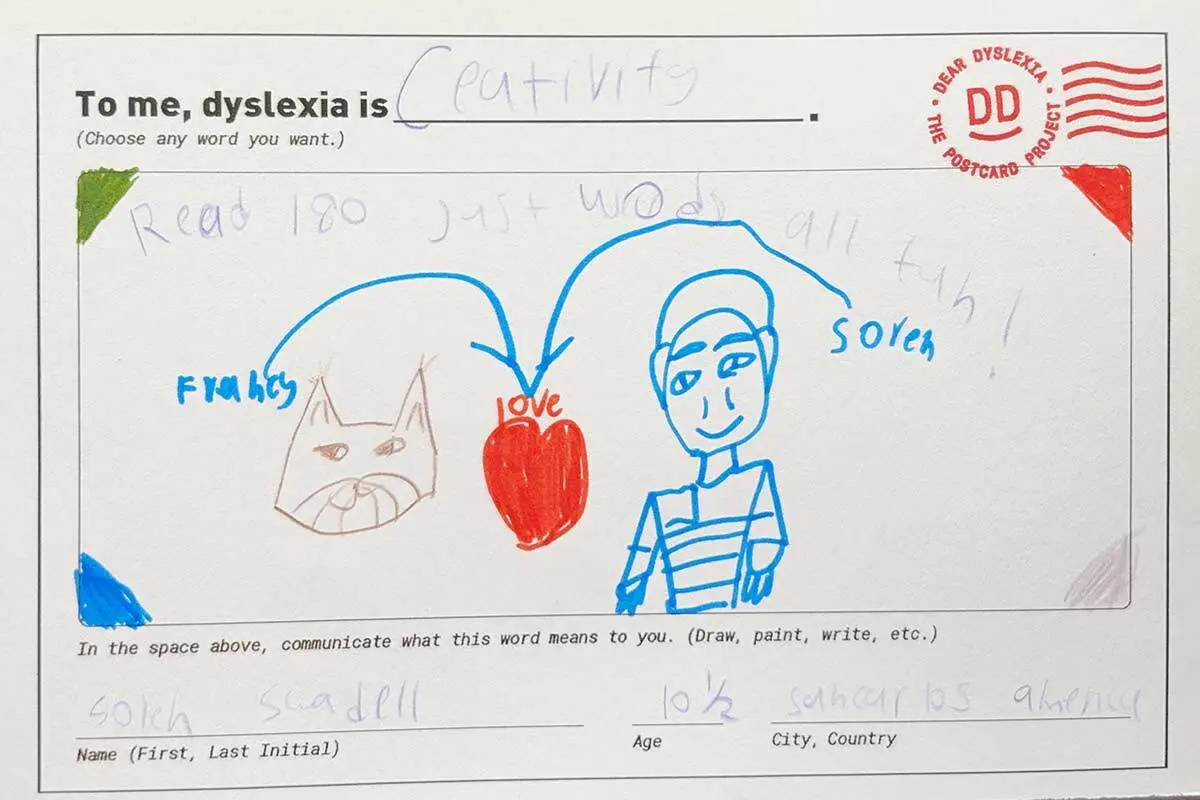 To me, dyslexia is Ceativity.
(Choose any word you want.)
• DEAR DYSLEXIA • THE POSTCARD PROJECT
DD
Read 180 just wods all tuh!
Francy
love
soren
In the space above, communicate what this word means to you. (Draw, paint, write, etc.)
soren
10 ½
sancarlos
Name (First, Last Initial)
Age
City, Country